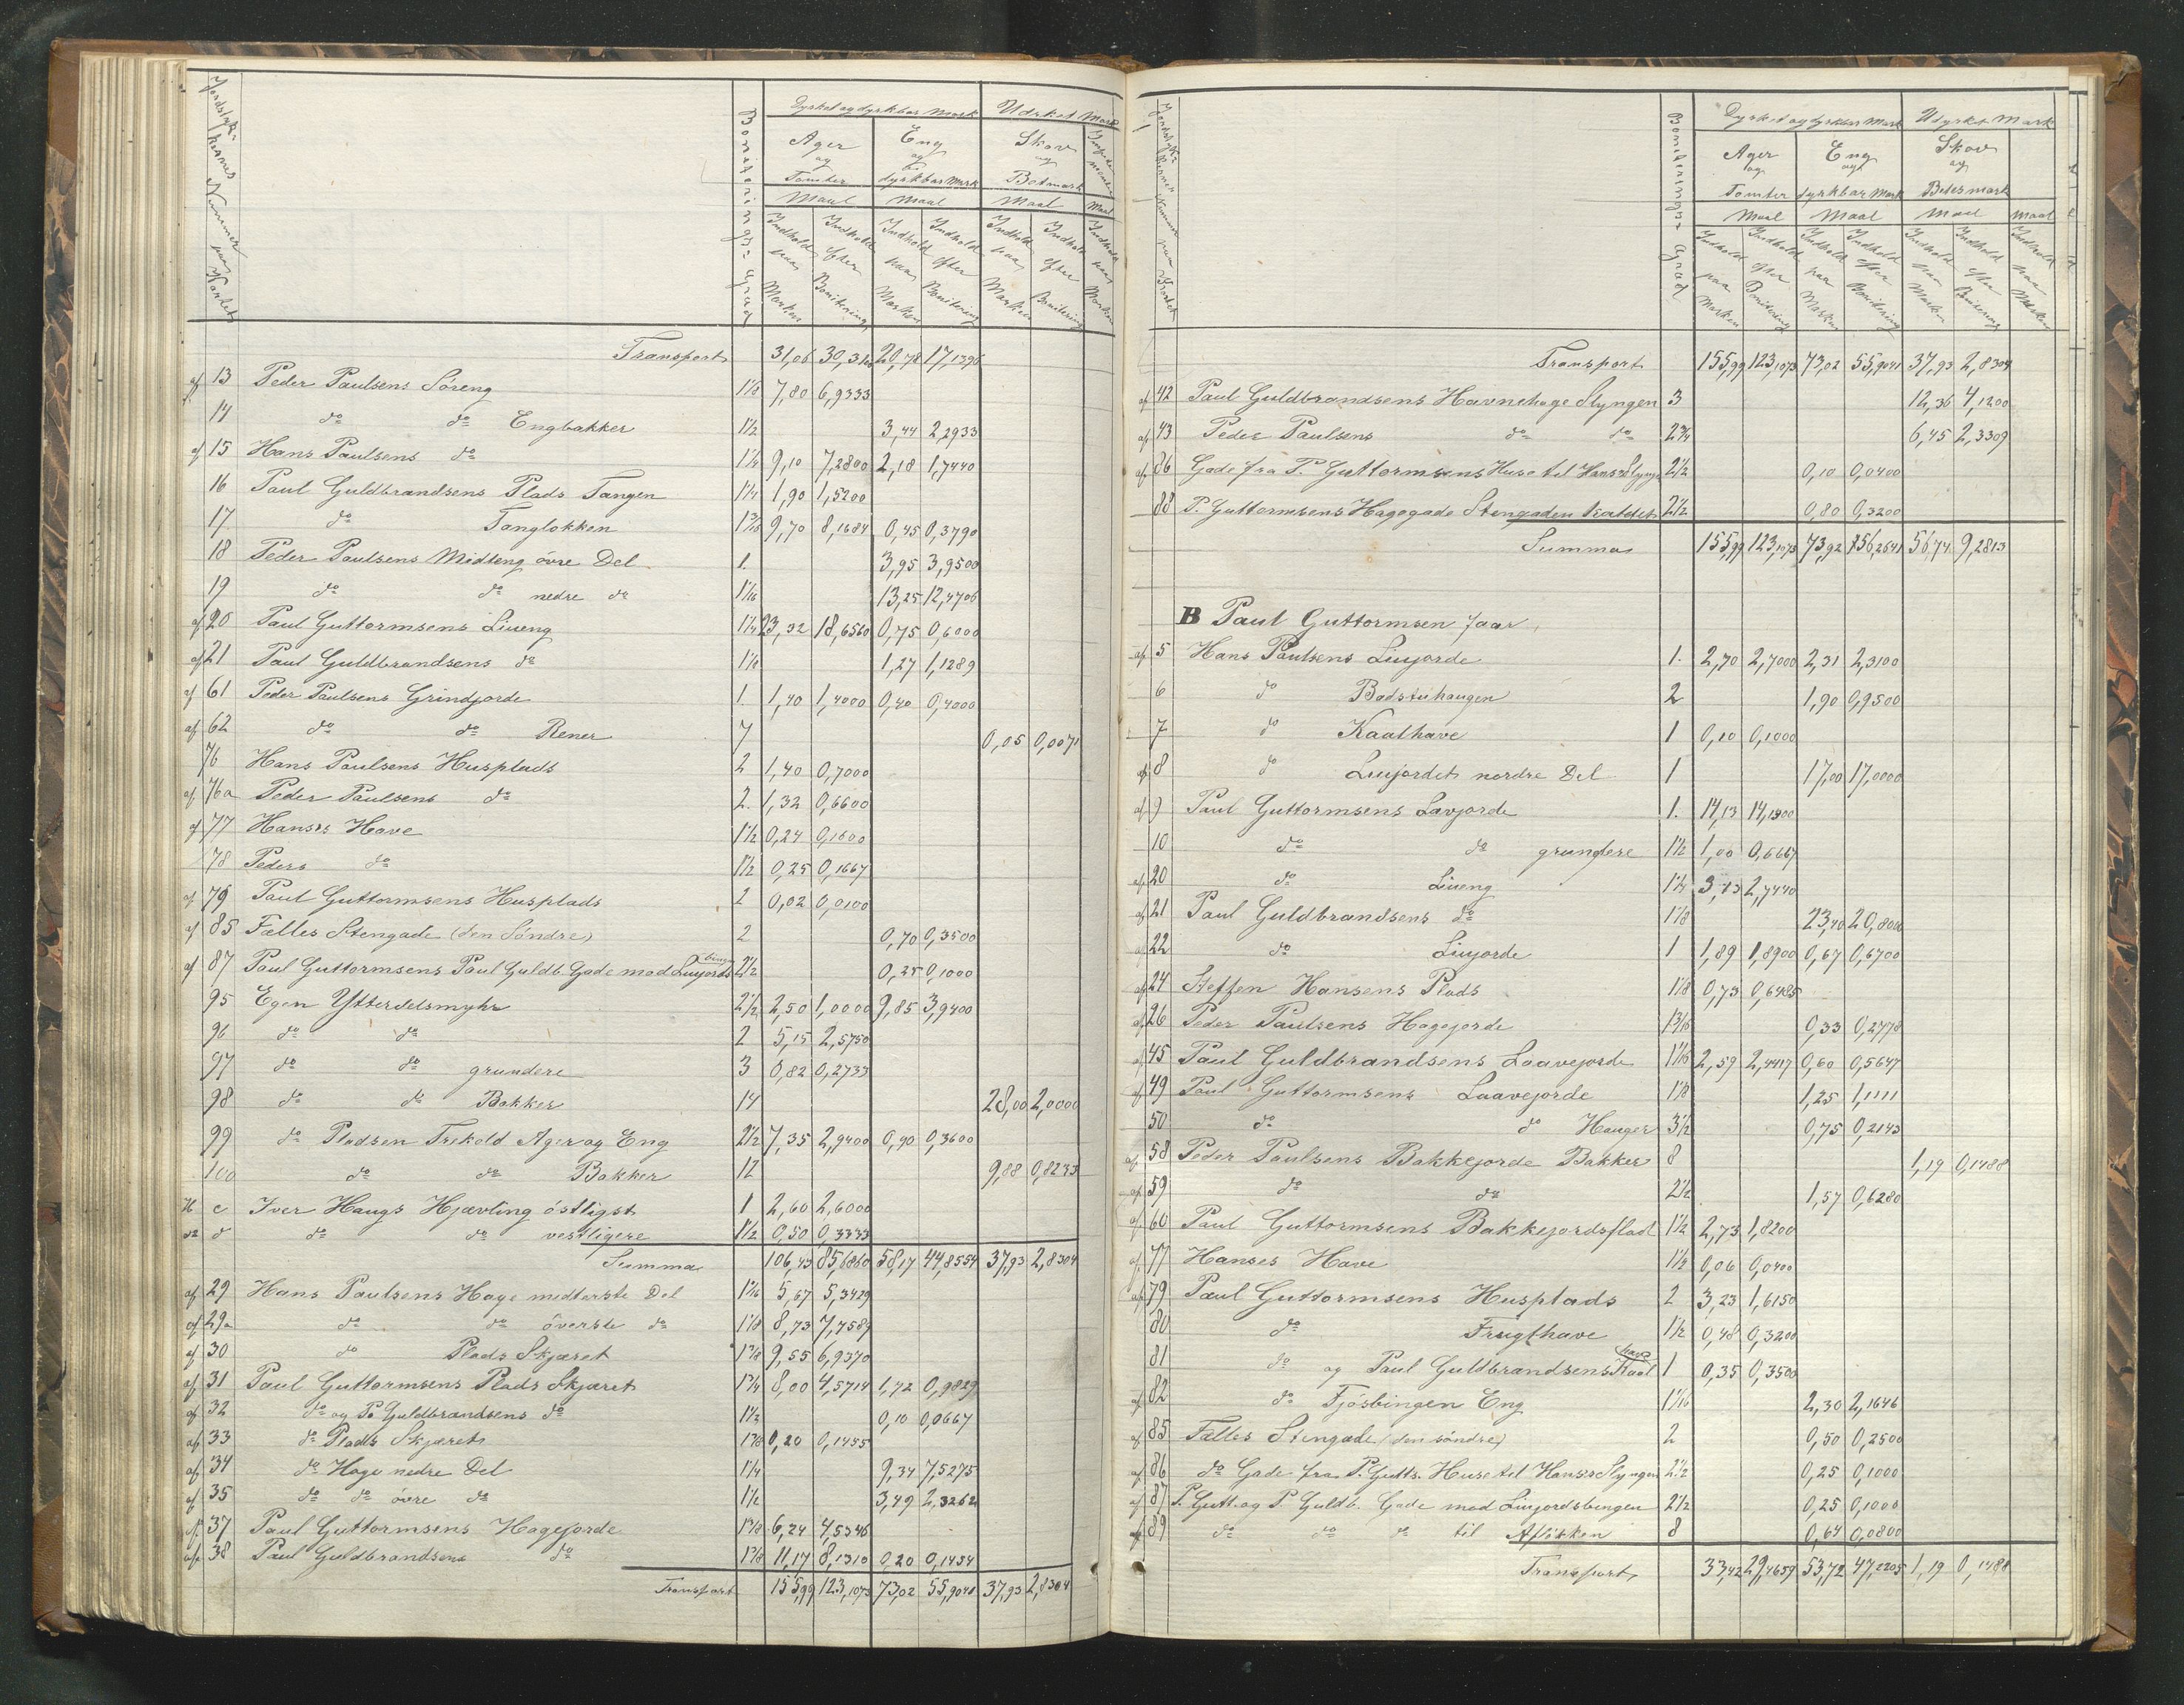 Jordstykkernes Nummer paa Kartet
Boniterings Grad
Dyrket og dyrkbar Mark | Udyrket Mark
Ager og Tomter | Eng og dyrkbar Mark | Skov og Betmark
Maal | Maal | Maal | Maal
Indhold paa Marken | Indhold efter Bonitering | Indhold paa Marken | Indhold efter Bonitering | Indhold paa Marken | Indhold efter Bonitering | Indhold paa Marken
Transport 31,06 20,78 17,1396
af 13 Peder Paulsens Söreng 1 1/8 7,80 6,9333
14 do do Engbakker 1 1/2 3,44 2,2933
af 15 Hans Paulsens do 1 1/4 9,10 7,2800 2,18 1,7440
16 Paul Guldbrandsens Plads Tangen 1 1/4 1,90 1,5200
17 do Tangløkken 1 3/16 9,70 8,1684 0,45 0,3790
18 Peder Paulsens Midteng övre Del 1. 3,95 3,9500
19 do do nedre do 1 1/16 13,25 12,4706
af 20 Paul Guttormsens Liueng 1 1/4 23,32 18,6560 0,75 0,6000
af 21 Paul Guldbrandsens do 1 1/8 1,27 1,1289
af 61 Peder Paulsens Grindjorde 1. 1,40 1,4000 0,40 0,4000
af 62 do do Rener 7 0,05 0,0071
76 Hans Paulsens Husplads 2 1,40 0,7000
af 76a Peder Paulsens do 2. 1,32 0,6600
af 77 Hanses Have 1 1/2 0,24 0,1600
78 Peders do 1 1/2 0,25 0,1667
af 79 Paul Guttormsens Husplads 2 0,02 0,0100
af 85 Fælles Stengade (den Søndre) 2 0,70 0,3500
af 87 Paul Guttormsens Paul Guldb. Gade mod Liujords bingen 2 1/2 0,25 0,1000
95 Egen Ytterdelsmyhr 2 1/2 2,50 1,0000 9,85 3,9400
96 do do 2 5,15 2,5750
97 do do grundere 3 0,82 0,2733
98 do do Bakker 14 28,00 2,0000
99 do Pladsen Trekold Ager og Eng 2 1/2 7,35 2,9400 0,90 0,3600
100 do do Bakker 12 9,88 0,8233
c Iver Haugs Hjævling østligst 1 2,60 2,6000
d do do vestligere 1 1/2 0,50 0,3333
Summa 106,43 85,6860 58,17 44,8554 37,93 2,8304
af 29 Hans Paulsens Hage midterste Del 1 1/16 5,67 5,3429
af 29a do do överste do 1 1/8 8,73 7,7589
af 30 do Plads Skjæret 1 3/8 9,55 6,9370
af 31 Paul Guttormsens Plads Skjæret 1 3/4 8,00 4,5714 1,72 0,9829
af 32 do og P. Guldbrandsens do 1 1/2 0,10 0,0667
af 33 do Plads Skjæret 1 3/8 0,20 0,1455
af 34 do Hage nedre Del 1 1/4 9,34 7,5275
af 35 do do övre do 1 1/2 3,49 2,3262
af 37 Paul Guttormsens Hagejorde 1 3/8 6,24 4,5346
af 38 Paul Guldbrandsens do 1 3/8 11,17 8,1310 0,20 0,1454
Transport 155,99 123,1073 73,02 55,9041 37,93 2,8304
Jordstykkernes Nummer paa Kartet
Boniterings Grad
Dyrket og dyrkbar Mark | Udyrket Mark
Ager og Tomter | Eng og dyrkbar Mark | Skov og Betesmark
Maal | Maal | Maal | Maal
Indhold paa Marken | Indhold efter Bonitering | Indhold paa Marken | Indhold efter Bonitering | Indhold paa Marken | Indhold efter Bonitering | Indhold paa Marken
Transport 155,99 123,1073 73,02 55,9041 37,93 2,8304
af 42 Paul Guldbrandsens Havnehage Slyngen 3 12,36 4,1200
af 43 Peder Paulsens do do 2 3/4 6,45 2,3309
af 86 Gade fra P. Guttormsens Huse til Hanses Slynge 2 1/2 0,10 0,0400
88 P. Guttormsens Hagegade Stengaden kaldet 2 1/2 0,80 0,3200
Summa 155,99 123,1073 73,92 56,2641 56,74 9,2813
B Paul Guttormsen Jaar,
af 5 Hans Paulsens Liujorde 1. 2,70 2,7000 2,31 2,3100
6 do Badstuhaugen 2 1,90 0,9500
7 do Kaalhave 1 0,10 0,1000
af 8 do Liujordets nordre Del 1 17,00 17,0000
af 9 Paul Guttormsens Lavjorde 1. 14,13 14,1300
10 do do grundere 1 1/2 1,00 0,6667
af 20 do Liueng 1 1/4 3,43 2,7440
af 21 Paul Guldbrandsens do 1 1/8 23,40 20,8000
af 22 do Liujorde 1 1,89 1,8900 0,67 0,6700
af 24 Steffen Hansens Plads 1 1/8 0,73 0,6485
af 26 Peder Paulsens Hagejorde 1 3/16 0,33 0,2778
af 45 Paul Guldbrandsens Laavejorde 1 1/16 2,59 2,4417 0,60 0,5647
af 49 Paul Guttormsens Laavejorde 1 1/8 1,25 1,1111
50 do do Hauger 3 1/2 0,75 0,2143
af 58 Peder Paulsens Bakkejorde Bakker 8 1,19 0,1488
af 59 do do 2 1/2 1,57 0,6280
af 60 Paul Guttormsens Bakkejordsflat 1 1/2 2,73 1,8200
af 77 Hanses Have 1 1/2 0,06 0,0400
af 79 Paul Guttormsens Husplads 2 3,23 1,6150
80 do Frugthave 1 1/2 0,48 0,3200
81 do og Paul Guldbrandsens Kaal have 1 0,35 0,3500
af 82 do Fjösbingen Eng 1 1/16 2,30 2,1646
af 85 Fælles Stengade (den søndre) 2 0,50 0,2500
af 86 do Gade fra P. Gutts. Huse til Hanses Slyngen 2 1/2 0,25 0,1000
af 87 P. Gutt. og P. Guldb. Gade mod Liujordsbingen 2 1/2 0,25 0,1000
af 89 do do do til Afløkken 8 0,64 0,0800
Transport 33,42 29,4659 53,72 47,2205 1,19 0,1488